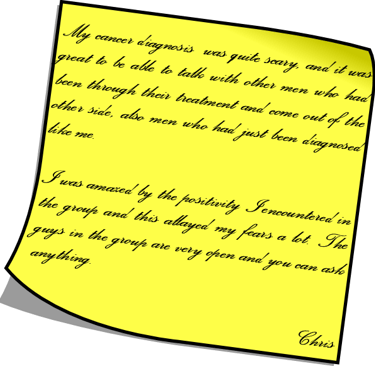 My cancer diagnosis was quite scary, and it was
great to be able to talk with other men who had
been through their treatment and come out of the
other side, also men who had just been diagnosed
like me.
I was amazed by the positivity I encountered in
the group and this allayed my fears a lot. The
guys in the group are very open and you can ask
anything.
Chris